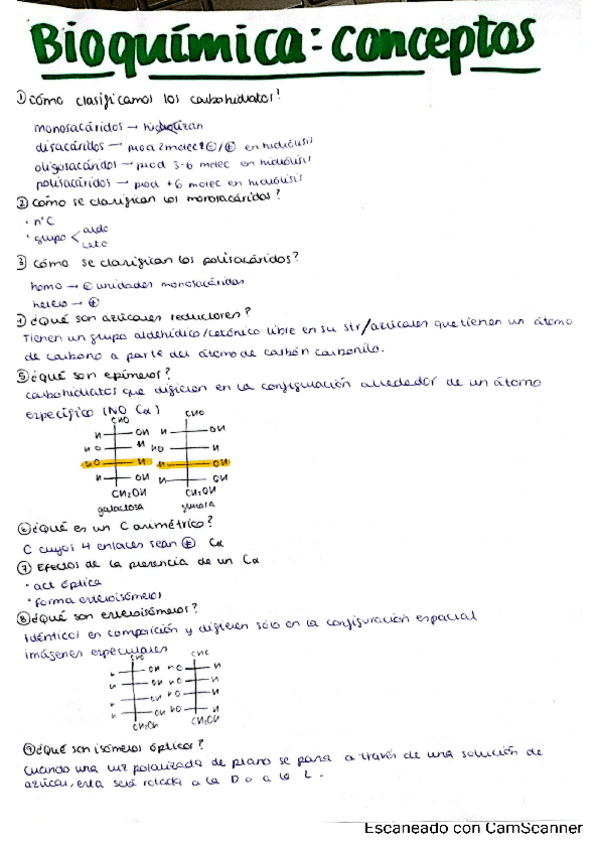 Bioquímica: conceptos
① cómo clasificamos los carbohidratos?
monosacáridos → hidrolizan
disacáridos → prod 2 molec = / ≠ en hidrólisis
oligosacáridos → prod 3-6 molec en hidrólisis
polisacáridos → prod +6 molec en hidrólisis
② cómo se clasifican los monosacáridos?
· nºC
· grupo < aldo
ceto
③ cómo se clasifican los polisacáridos?
homo → = unidades monosacáridos
hetero → ≠
④ ¿Qué son azúcares reductores?
Tienen un grupo aldehídico/cetónico libre en su str/azúcares que tienen un átomo
de carbono a parte del átomo de carbón carbonilo.
⑤ ¿qué son epímeros?
carbohidratos que difieren en la configuración alrededor de un átomo
específico (NO Cα)
CHO CHO
H OH H OH
HO H HO H
HO H H OH
H OH H OH
CH2OH CH2OH
galactosa glucosa
⑥ ¿Qué es un C asimétrico?
C cuyos 4 enlaces sean ≠ Cα
⑦ Efectos de la presencia de un Cα
· act óptica
· forma estereoisómeros
⑧ ¿Qué son estereoisómeros?
Idénticos en composición y difieren sólo en la configuración espacial
imágenes especulares
CHO CHO
OH HO H
H OH HO H
OH HO H
OH HO H
CH2OH CH2OH
⑨ ¿Qué son isómeros ópticos?
Cuando una luz polarizada de plano se pasa a través de una solución de
azúcar, esta será rotada a la D o a la L.
Escaneado con CamScanner